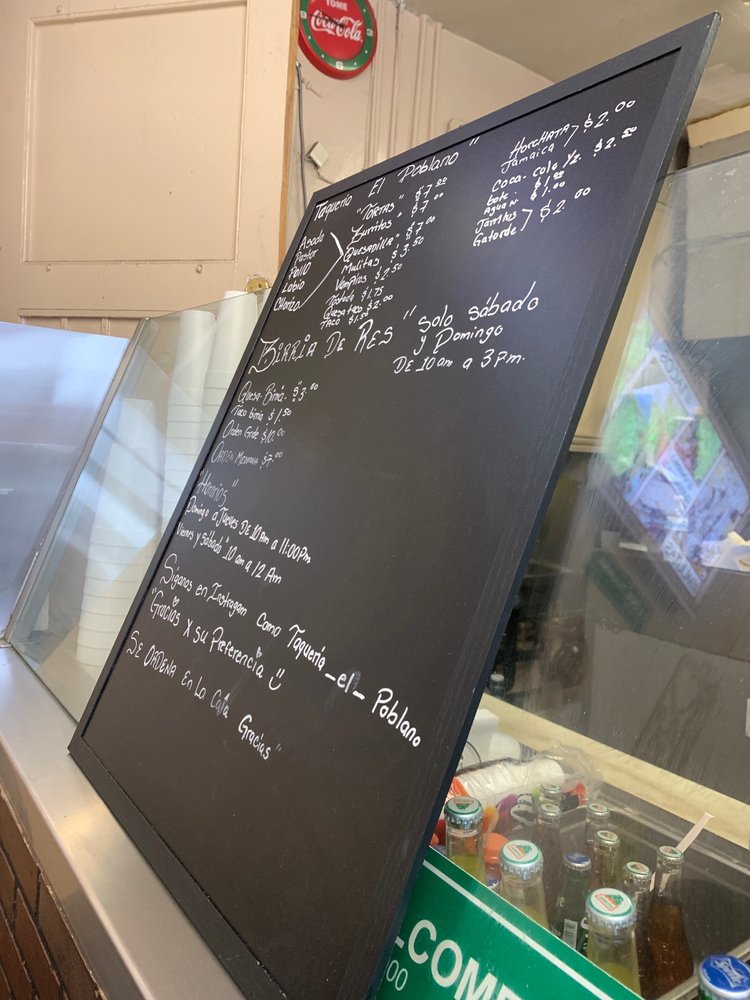 TOME
Coca-Cola
Taqueria El Poblano"
Asada
Pastor
Pollo
Labio
Chorizo
"TORTAS" $7.00
Burritos" $7.00
QUESADILLA" $7.00
Mulitas $3.50
Vampiros $2.50
Tostada $1.75
Quesataco $2.00
Taco $1.50
HORCHATA
Jamaica > $2.00
COCA-Cola 1/2. $2.50
bote. $1.00
Agua $1.00
Jarritos
Gatorde > $2.00
BIRRIA DE RES" Solo sábado
y Domingo
DE 10am a 3pm.
Quesa-Birria. $3.00
Taco birria $1.50
Orden Grde $10.00
Orden Mediana $7.00
"Horarios"
Domingo a Jueves DE 10am a 11:00pm
Viernes y Sábado" 10am a 12 Am
Siganos en Instragam como Taqueria_el_Poblano
"Gracias X Su Preferencia
SE ORDENA En La Caja Gracias"
-COM
00